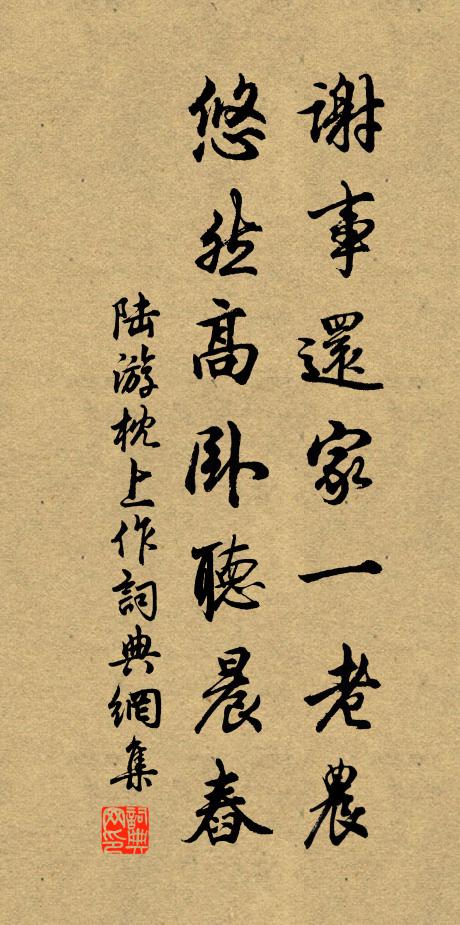 謝事還家一老農
悠然高臥聽晨舂
陸游枕上作詞典網集
詞典網印